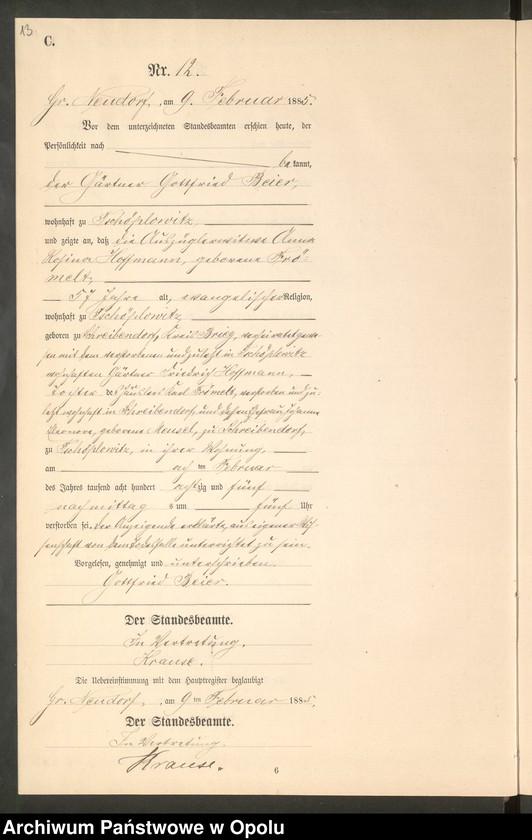 13
C.
Nr. 12.
Gr. Neudorf, am 9. Februar 1885.
Vor dem unterzeichneten Standesbeamten erschien heute, der
Persönlichkeit nach
bekannt,
der Gärtner Gottfried Beier,
wohnhaft zu Tschöplowitz
und zeigte an, daß die Auszüglerwitwe Anna
Rosina Hoffmann, geborene Frö-
melt,
57 Jahre alt, evangelischer Religion,
wohnhaft zu Tschöplowitz,
geboren zu Schreibendorf, Kreis Brieg, verheiratet gewe-
sen mit dem verstorbenen und zuletzt in Tschöplowitz
wohnhaften Gärtner Friedrich Hoffmann,
Tochter des Häuslers Karl Frömelt, verstorben und zu-
letzt wohnhaft in Schreibendorf, und dessen Ehefrau Johanna
Eleonore, geborene Mensel, zu Schreibendorf,
zu Tschöplowitz, in ihrer Wohnung,
am acht ten Februar
des Jahres tausend acht hundert achtzig und fünf
nachmittags um fünf Uhr
verstorben sei. Der Anzeigende erklärte, aus eigener Wis-
senschaft von dem Todesfalle unterrichtet zu sein.
Vorgelesen, genehmigt und unterschrieben.
Gottfried Beier.
Der Standesbeamte.
In Vertretung.
Krause.
Die Uebereinstimmung mit dem Hauptregister beglaubigt
Gr. Neudorf, am 9 ten Februar 1885.
Der Standesbeamte.
In Vertretung.
Krause.
6
Archiwum Państwowe w Opolu